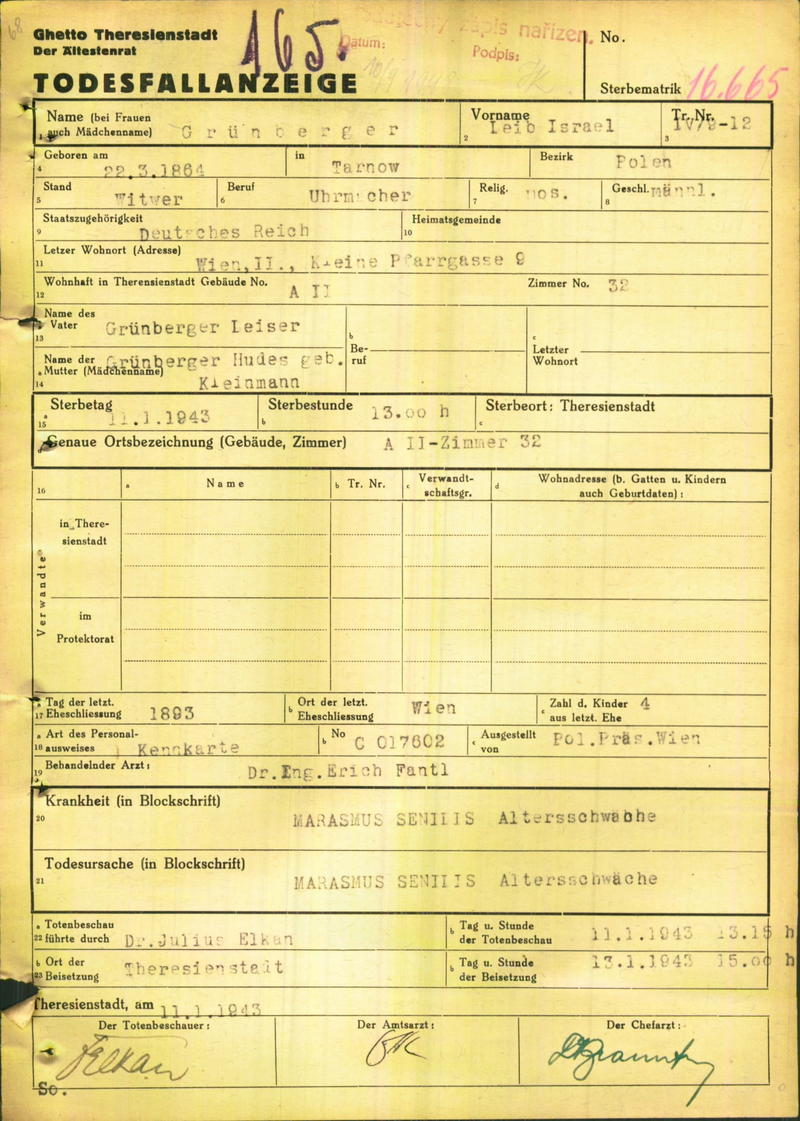 68
Ghetto Theresienstadt
Der Ältestenrat
TODESFALLANZEIGE
165.
zápis nařízen.
Datum:
Podpis:
No.
Sterbematrik 16.665
Name (bei Frauen auch Mädchenname) Grünberger
Vorname Leib Israel
Tr. Nr. IV/2-12
1 2 3
Geboren am 22.3.1864 in Tarnow Bezirk Polen
4
Stand Witwer Beruf Uhrmacher Relig. mos. Geschl. männl.
5 6 7 8
Staatszugehörigkeit Deutsches Reich Heimatsgemeinde
9 10
Letzer Wohnort (Adresse) Wien,II., Kleine Pfarrgasse 9
11
Wohnhaft in Therensienstadt Gebäude No. A II Zimmer No. 32
12
Name des Vater Grünberger Leiser
13
Name der Mutter (Mädchenname) Grünberger Hudes geb. Kleinmann
a 14
b Beruf
c Letzter Wohnort
Sterbetag 11.1.1943 Sterbestunde 13.00 h Sterbeort: Theresienstadt
a 15 b c
Genaue Ortsbezeichnung (Gebäude, Zimmer) A II-Zimmer 32
16 a Name b Tr. Nr. c Verwandtschaftsgr. d Wohnadresse (b. Gatten u. Kindern auch Geburtdaten):
Verwandte
in Theresienstadt
im Protektorat
a Tag der letzt. 17 Eheschliessung 1893 b Ort der letzt. Eheschliessung Wien c Zahl d. Kinder aus letzt. Ehe 4
a Art des Personal- 18 ausweises Kennkarte b No C 017602 c Ausgestellt von Pol.Präs.Wien
19 Behandelnder Arzt: Dr.Ing.Erich Fantl
Krankheit (in Blockschrift)
20 MARASMUS SENILIS Altersschwäche
Todesursache (in Blockschrift)
21 MARASMUS SENILIS Altersschwäche
a Totenbeschau 22 führte durch Dr.Julius Elkan b Tag u. Stunde der Totenbeschau 11.1.1943 13.15 h
b Ort der 23 Beisetzung Theresienstadt b Tag u. Stunde der Beisetzung 13.1.1943 15.00 h
Theresienstadt, am 11.1.1943
Der Totenbeschauer: Der Amtsarzt: Der Chefarzt:
Elkan
So.